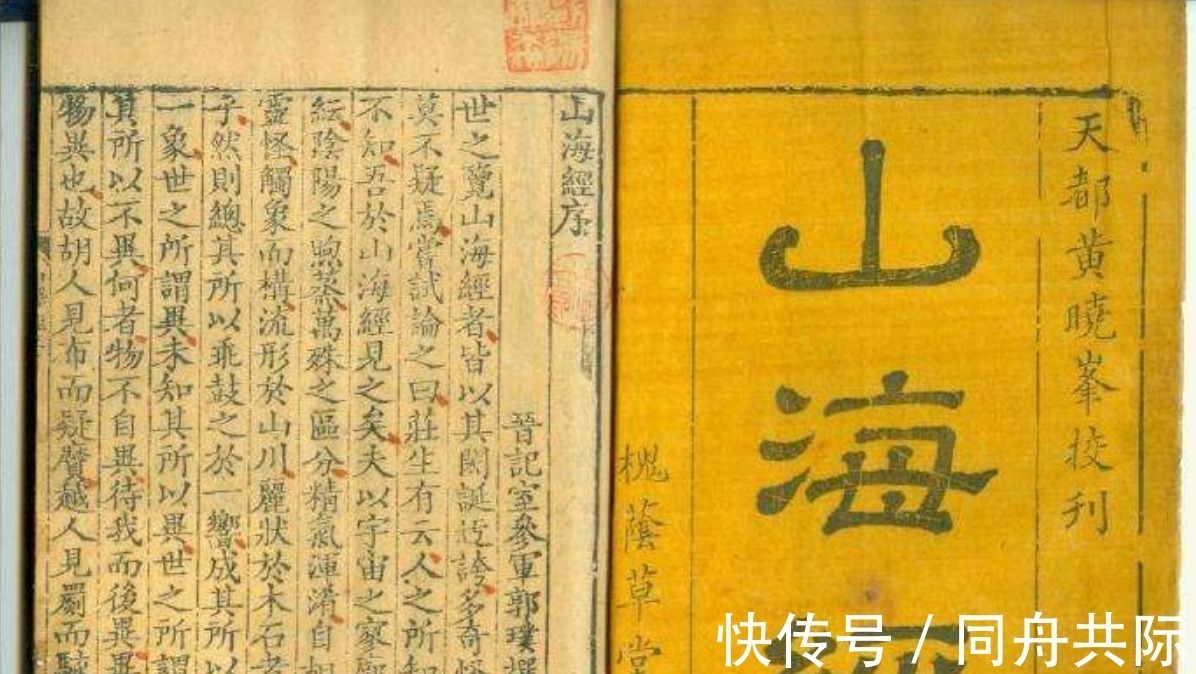 天都黄曉峯校刊
山海
槐蔭草堂
山海經序
晉記室參軍郭璞撰
世之覽山海經者皆以其閎誕迂誇多奇怪
莫不疑焉嘗試論之曰莊生有云人之所知
不知吾於山海經見之矣夫以宇宙之寥廓
紜陰陽之煦蒸萬殊之區分精氣渾淆自相
靈怪觸象而構流形於山川麗狀於木石者
子然則總其所以乖鼓之於一響成其所以
一象世之所謂異未知其所以異世之所謂
其所以不異何者物不自異待我而後異異
物異也故胡人見布而疑黂越人見罽而駭
快传号 / 同舟共际